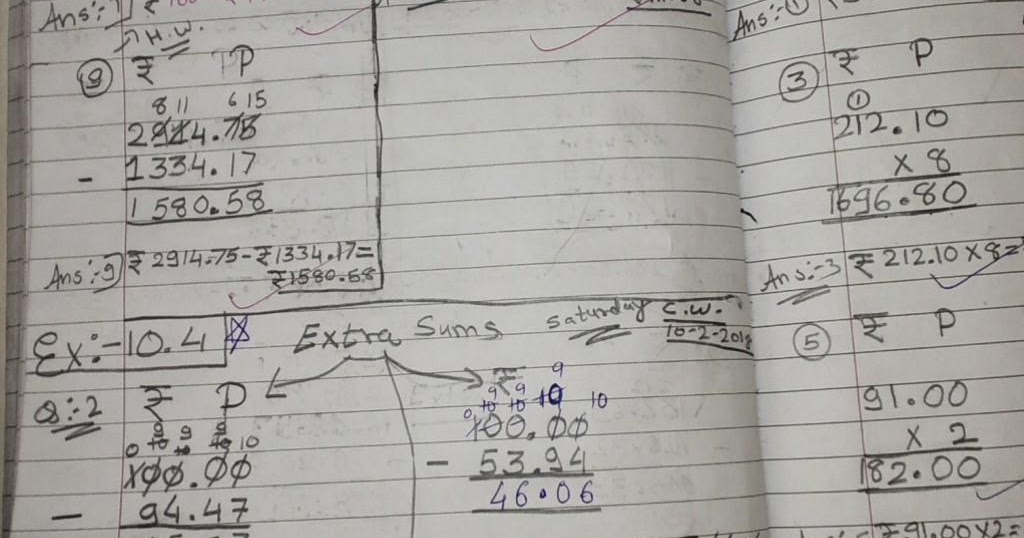 Ans:-
H.W.
9 ₹ P
8 11 6 15
2914.75
- 1334.17
1580.58
Ans:-9) ₹ 2914.75-₹1334.17=
₹1580.58
Ex:-10.4 Extra Sums Saturday C.W.
10-2-2018
Q:-2 ₹ P
0 10 9 10 9 10 9 10
100.00
- 94.47
₹
9
9 9
0 10 10 10 10
100.00
- 53.94
46.06
Ans:-1
3 ₹ P
1
212.10
x 8
1696.80
Ans:-3 ₹ 212.10 x 8=
5 ₹ P
91.00
x 2
182.00
₹91.00x2=